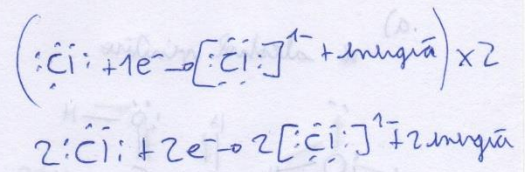 (:C̈l: + 1e⁻ → [:C̈l:]¹⁻ + energia) x 2
2 :C̈l: + 2e⁻ → 2 [:C̈l:]¹⁻ + 2 energia